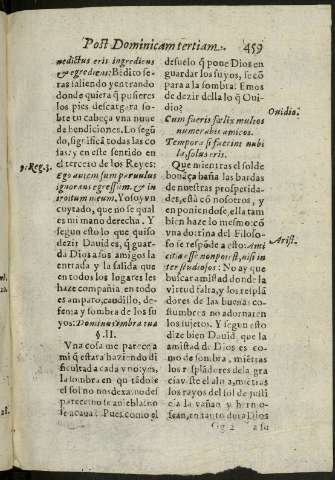 Post Dominicam tertiam. 459
nedictus eris ingrediens
& egrediens: Bẽdito se-
ras saliendo y entrando
donde quiera q̃ pusieres
los pies descargara so-
bre tu cabeça vna nuue
de bendiciones. Lo segũ
do, significà todas las co
sas; y en este sentido en
3. Reg. 3.
el tercero de los Reyes:
Ego autem sum paruulus
ignorans egressum, & in
troitum meum. Yo soy vn
cuytado, que no se qual
es mi mano derecha. Y
segun esto lo que quiso
dezir Dauid es, q̃ guar-
da Dios a sus amigos la
entrada y la salida que
en todos los logares les
haze compañia, en todo
es amparo, caudillo, de-
fensa y sombra de los su
yos: Dominus vmbra tua
§. II.
Vna cosa me parece a
mi q̃ estara haziendo di
ficultad a cada vno y es,
la sombra en quãdo le
el sol no nos dexa, no des
parece no se anieblan, no
se acaua? Pues como el
desuelo q̃ pone Dios en
guardar los suyos, se cõ
para a la sombra? Emos
de dezir della lo q̃ Oui-
dio?
Ouidio.
Cum fueris fœlix multos
numerabis amicos.
Tempora si fuerint nubi
la solus eris.
Que mientras el sol de
bonãça baña las bardas
de nuestras prospetida-
des, està cõ nosotros, y
en poniendose, ella tam
bien haze lo mesmo: cõ
vna dotrina del Filoso-
fo se respõde a esto: Ami
Arist.
citia esse non potest, nisi in
ter studiosos: No ay que
buscar amistad donde la
virtud falta, y los respla
dores de las buenas cos-
tumbres no adornaren
los sujetos. Y segun esto
dize bien Dauid, que la
amistad de Dios es co-
mo de sombra, mietras
los resplãdores de la gra
cia viste el alma, mietras
los rayos del sol de justi
cia la vañan y hermo-
sean, en tanto dura Dios
Gg 2 a su